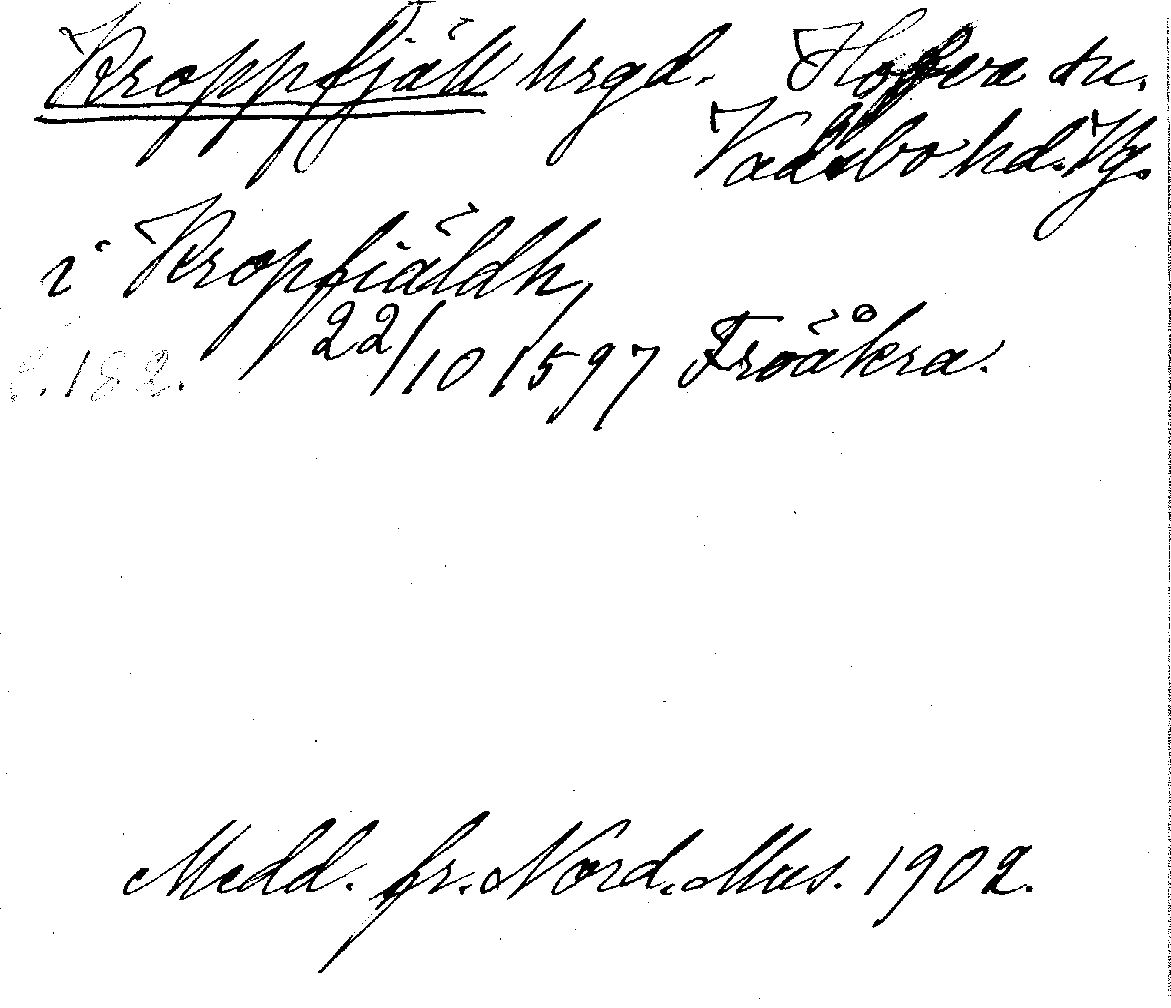 Kroppfjäll hrgd. Hofva sn.
Vadsbo hd. Vg.
i Kropfiäldh,
22/10 1597 Fröåkra.
s. 182.
Medd. fr. Nord. Mus. 1902.